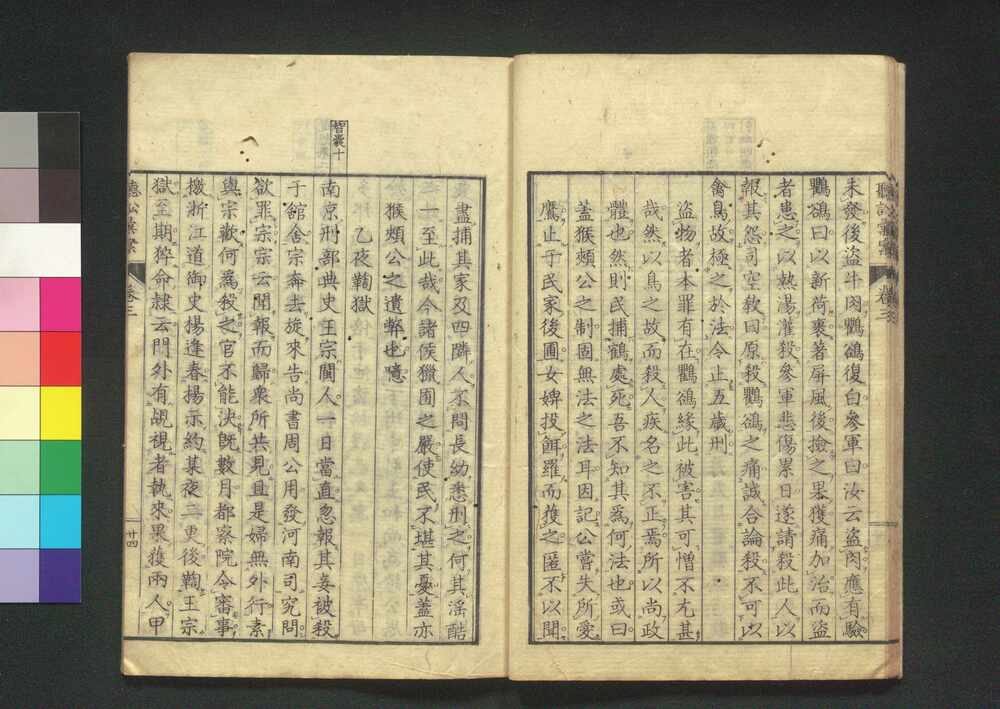 未發後盜牛肉鸜鵒復白參軍曰汝云盜肉應有驗
鸜鵒曰以新荷裹著屏風後撿之果獲痛加治而盜
者患之以熱湯灌殺參軍悲傷累日遂請殺此人以
報其怨司空敎曰原殺鸜鵒之痛誠合論殺不可以
禽鳥故極之於法令止五歲刑
盜物者本罪有在鸜鵒緣此被害其可憎不尤甚
哉然以鳥之故而殺人疾名之不正焉所以尚政
體也然則民捕鶴處死吾不知其爲何法也或曰
蓋猴頰公之制固無法之法耳因記公嘗失所愛
鷹止于民家後圃女婢投餌羅而獲之匿不以聞
盡捕其家及四隣人不問長幼悉刑之何其淫酷
之一至此哉今諸候獵囿之嚴使民不堪其憂蓋亦
猴頰公之遺弊也噫
乙夜鞫獄
智囊十
南京刑部典史王宗閩人一日當直忽報其妾被殺
于館舍宗奔去旋來告尚書周公用發河南司究問
欲罪宗宗云聞報而歸衆所共見且是婦無外行素
與宗歡何爲殺之官不能決既數月都察院令審事
檄浙江道御史楊逢春楊示約某夜二更後鞫王宗
獄至期猝命隸云門外有覘視者執來果獲兩人甲
聽訟彙案
卷三
十四